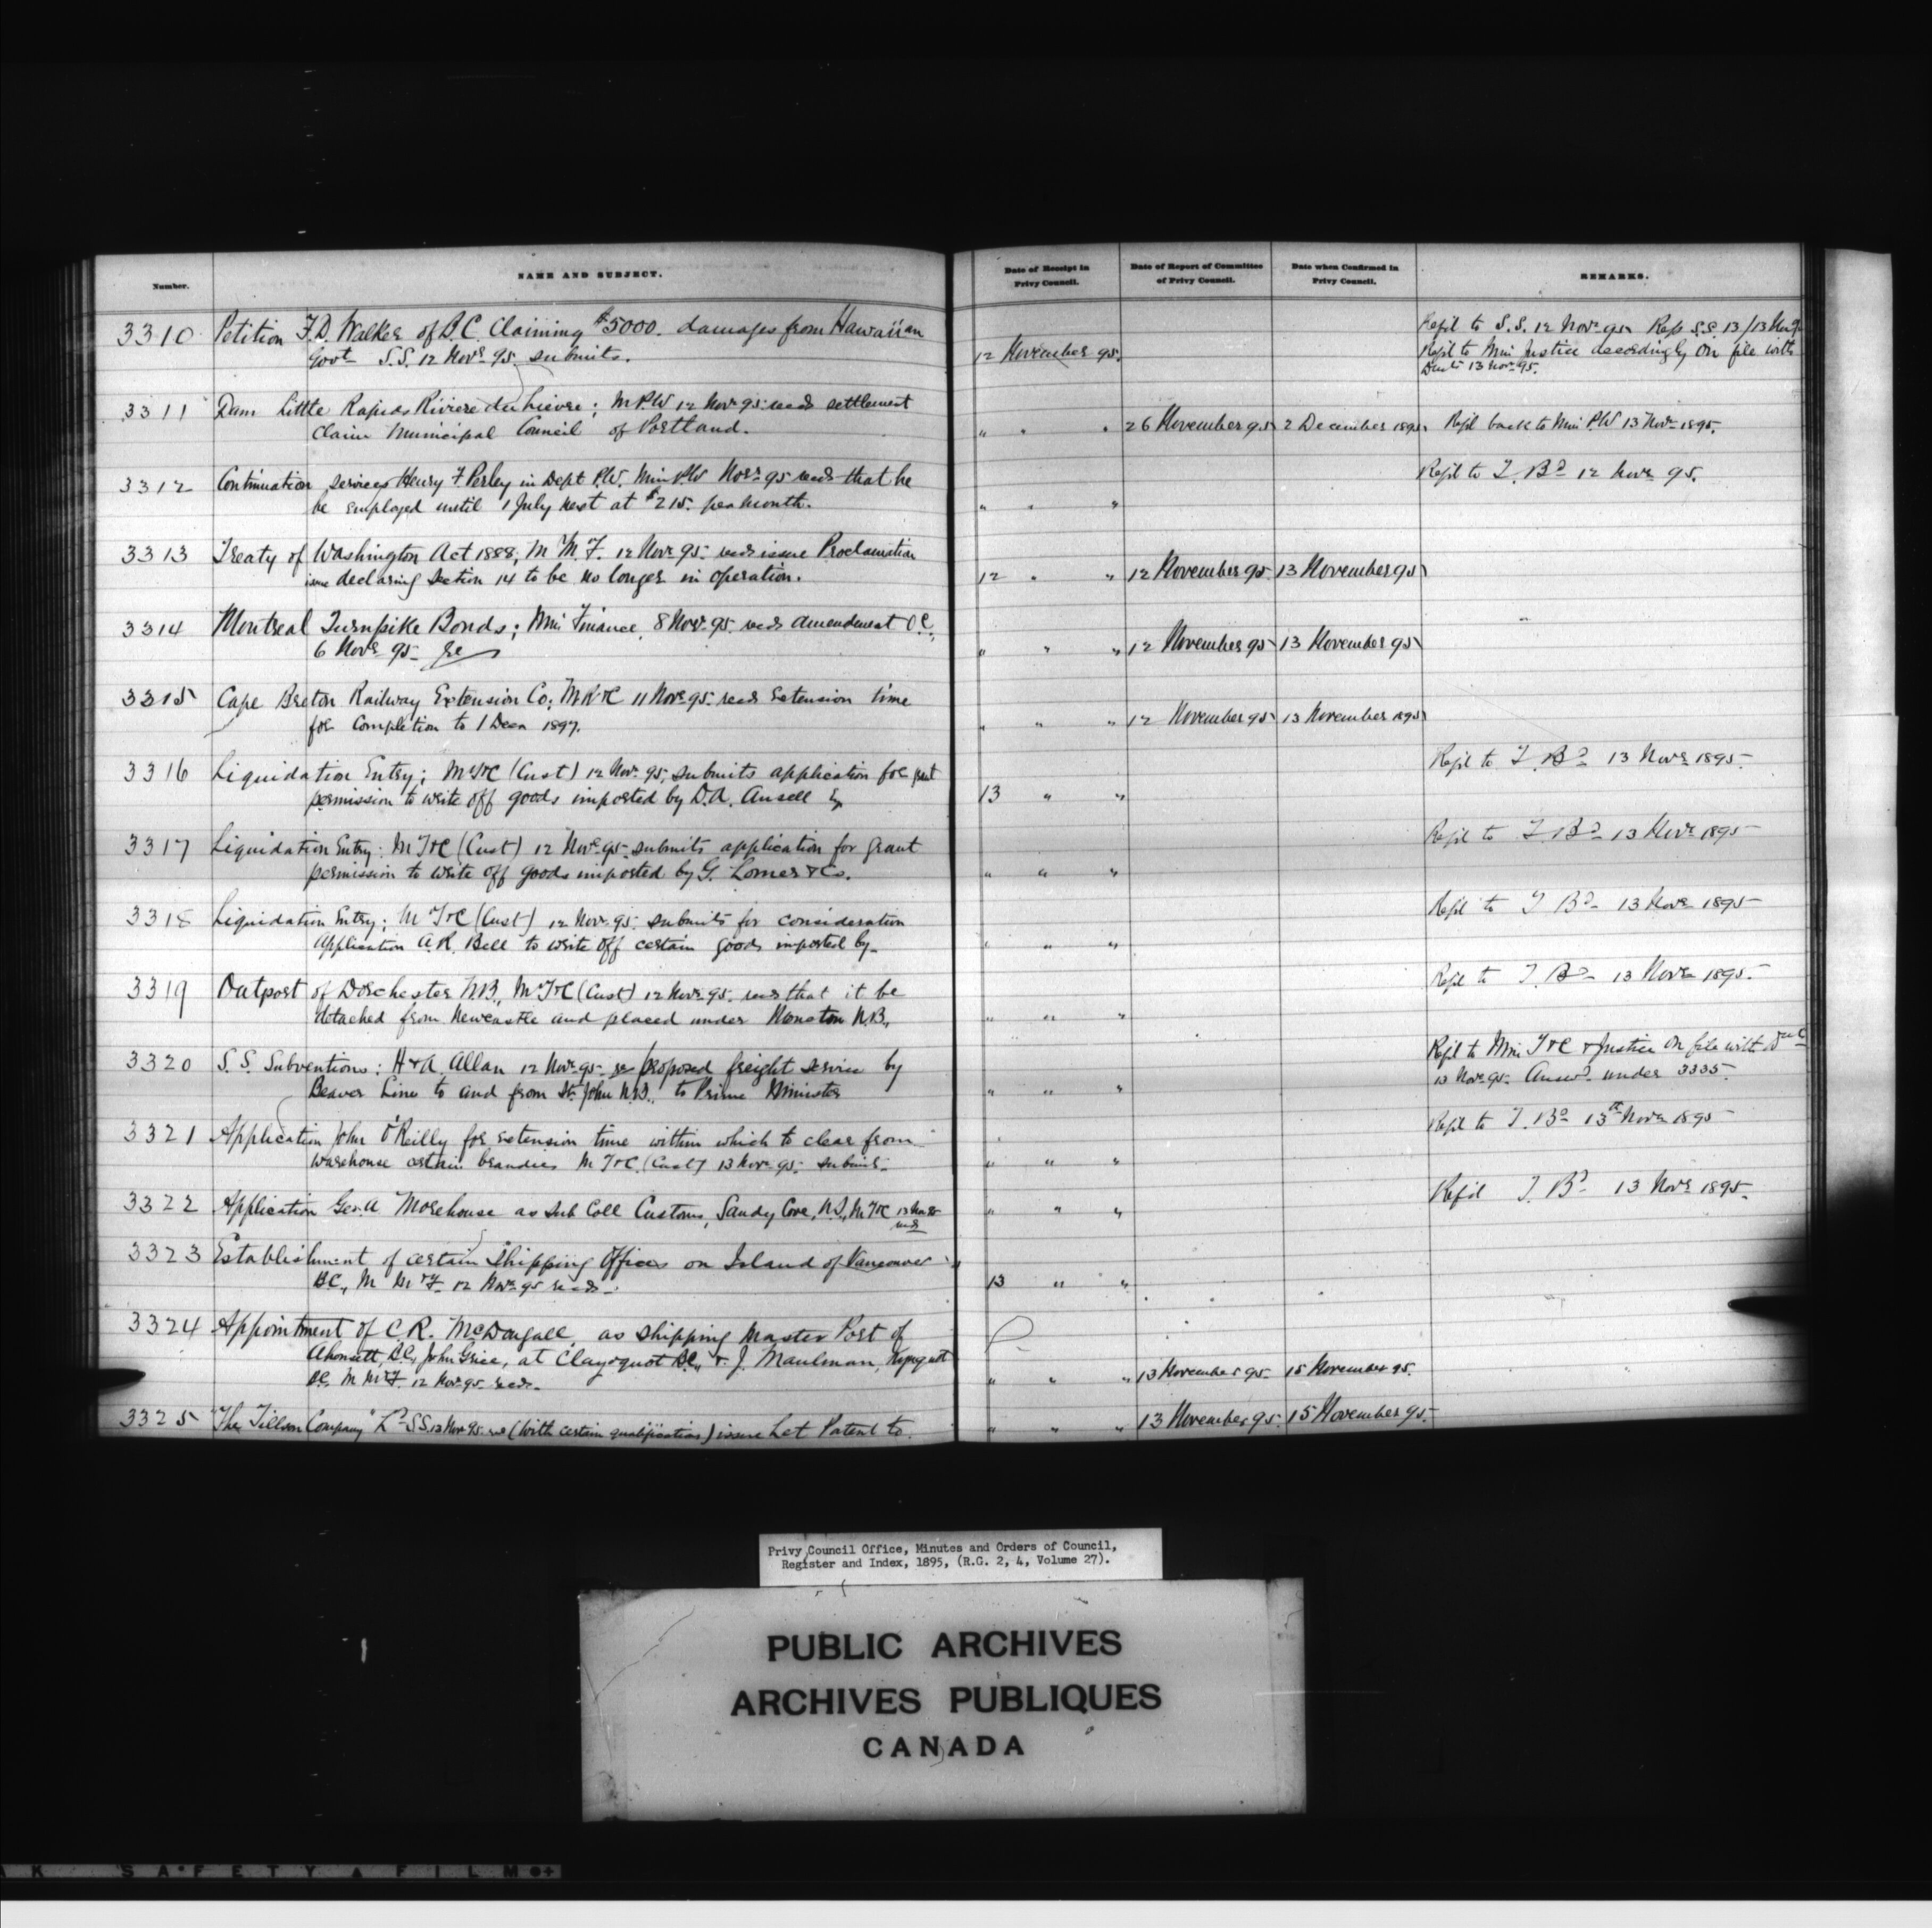 Number.
NAME AND SUBJECT.
Date of Receipt in
Privy Council.
Date of Report of Committee
of Privy Council.
Date when Confirmed in
Privy Council.
REMARKS.
3310 Petition F.D. Walker of B.C. Claiming $5000. damages from Hawaiian
Govt S.S. 12 Novr 95. submits.
12 November 95.
Refd to S.S. 12 Novr 95 Rep S.S. 13/13
Refd to Min Justice accordingly on file with
13 Nov 95.
3311 Dam Little Rapids Riviere du Lievre; M P.W 12 Novr 95. recds settlement
claim Municipal Council of Portland.
" " " 26 November 95 2 December 1895 Refd back to Min P.W 13 Novr 1895.
3312 Continuation services Henry F Perley in Dept P.W. Min P.W Novr 95 recds that he
be employed until 1 July next at $215. per month.
" " "
Refd to T. Bd 12 Novr 95.
3313 Treaty of Washington Act 1888; M M & F. 12 Novr 95. recds issue Proclamation
issue declaring Section 14 to be no longer in operation.
12 " " 12 November 95 13 November 95
3314 Montreal Turnpike Bonds; Min Finance, 8 Novr 95. recds amendment O.C.,
6 Novr 95 re
" " " 12 November 95 13 November 95
3315 Cape Breton Railway Extension Co; M R & C 11 Novr 95. recds extension time
for completion to 1 Decr 1897.
" " " 12 November 95 13 November 1895
3316 Liquidation Entry; M T & C (Cust) 12 Novr 95, submits application for grant
permission to write off goods imported by D.A. Ansell
13 " "
Refd to T. Bd 13 Novr 1895.
3317 Liquidation Entry: M T & C (Cust) 12 Novr 95. submits application for grant
permission to write off goods imported by G. Lomer & Co.
" " "
Refd to T. Bd 13 Novr 1895
3318 Liquidation Entry; M T & C (Cust) 12 Novr 95. submits for consideration
Application A.R. Bell to write off certain goods imported by
" " "
Refd to T Bd 13 Novr 1895
3319 Outpost of Dorchester N.B., M T & C (Cust) 12 Novr 95. recds that it be
detached from Newcastle and placed under Moncton N.B.,
" " "
Refd to T. Bd 13 Novr 1895.
3320 S.S. Subventions: H & A. Allan 12 Novr 95 re proposed freight service by
Beaver Line to and from St. John N.B., to Prime Minister
" " "
Refd to Min T & C & Justice on file with
13 Nov 95. Answd under 3335.
3321 Application John O'Reilly for extension time within which to clear from
warehouse certain brandies M T & C. (Cust) 13 Novr 95. submits
" " "
Refd to T. Bd 13th Novr 1895
3322 Application Geo. A Morehouse as Sub Coll Customs, Sandy Cove, N.S., M T & C 13 Nov 95
recds
" " "
Refd T. Bd 13 Novr 1895.
3323 Establishment of certain Shipping Offices on Island of Vancouver
B.C., M M & F 12 Novr 95 recds
13 " "
3324 Appointment of C R. McDougall, as shipping Master Port of
Ahousett, B.C., John Grice, at Clayoquot B.C., & J. Maulman, Kyuquot
B.C. M M & F. 12 Nov 95 recds.
" " " 13 November 95 15 November 95.
3325 "The Tillson Company" Ld S.S. 13 Nov 95. recd (with certain qualification) issue Let Patent to.
" " " 13 November 95. 15 November 95.
Privy Council Office, Minutes and Orders of Council,
Register and Index, 1895, (R.G. 2, 4, Volume 27).
PUBLIC ARCHIVES
ARCHIVES PUBLIQUES
CANADA
SAFETY FILM